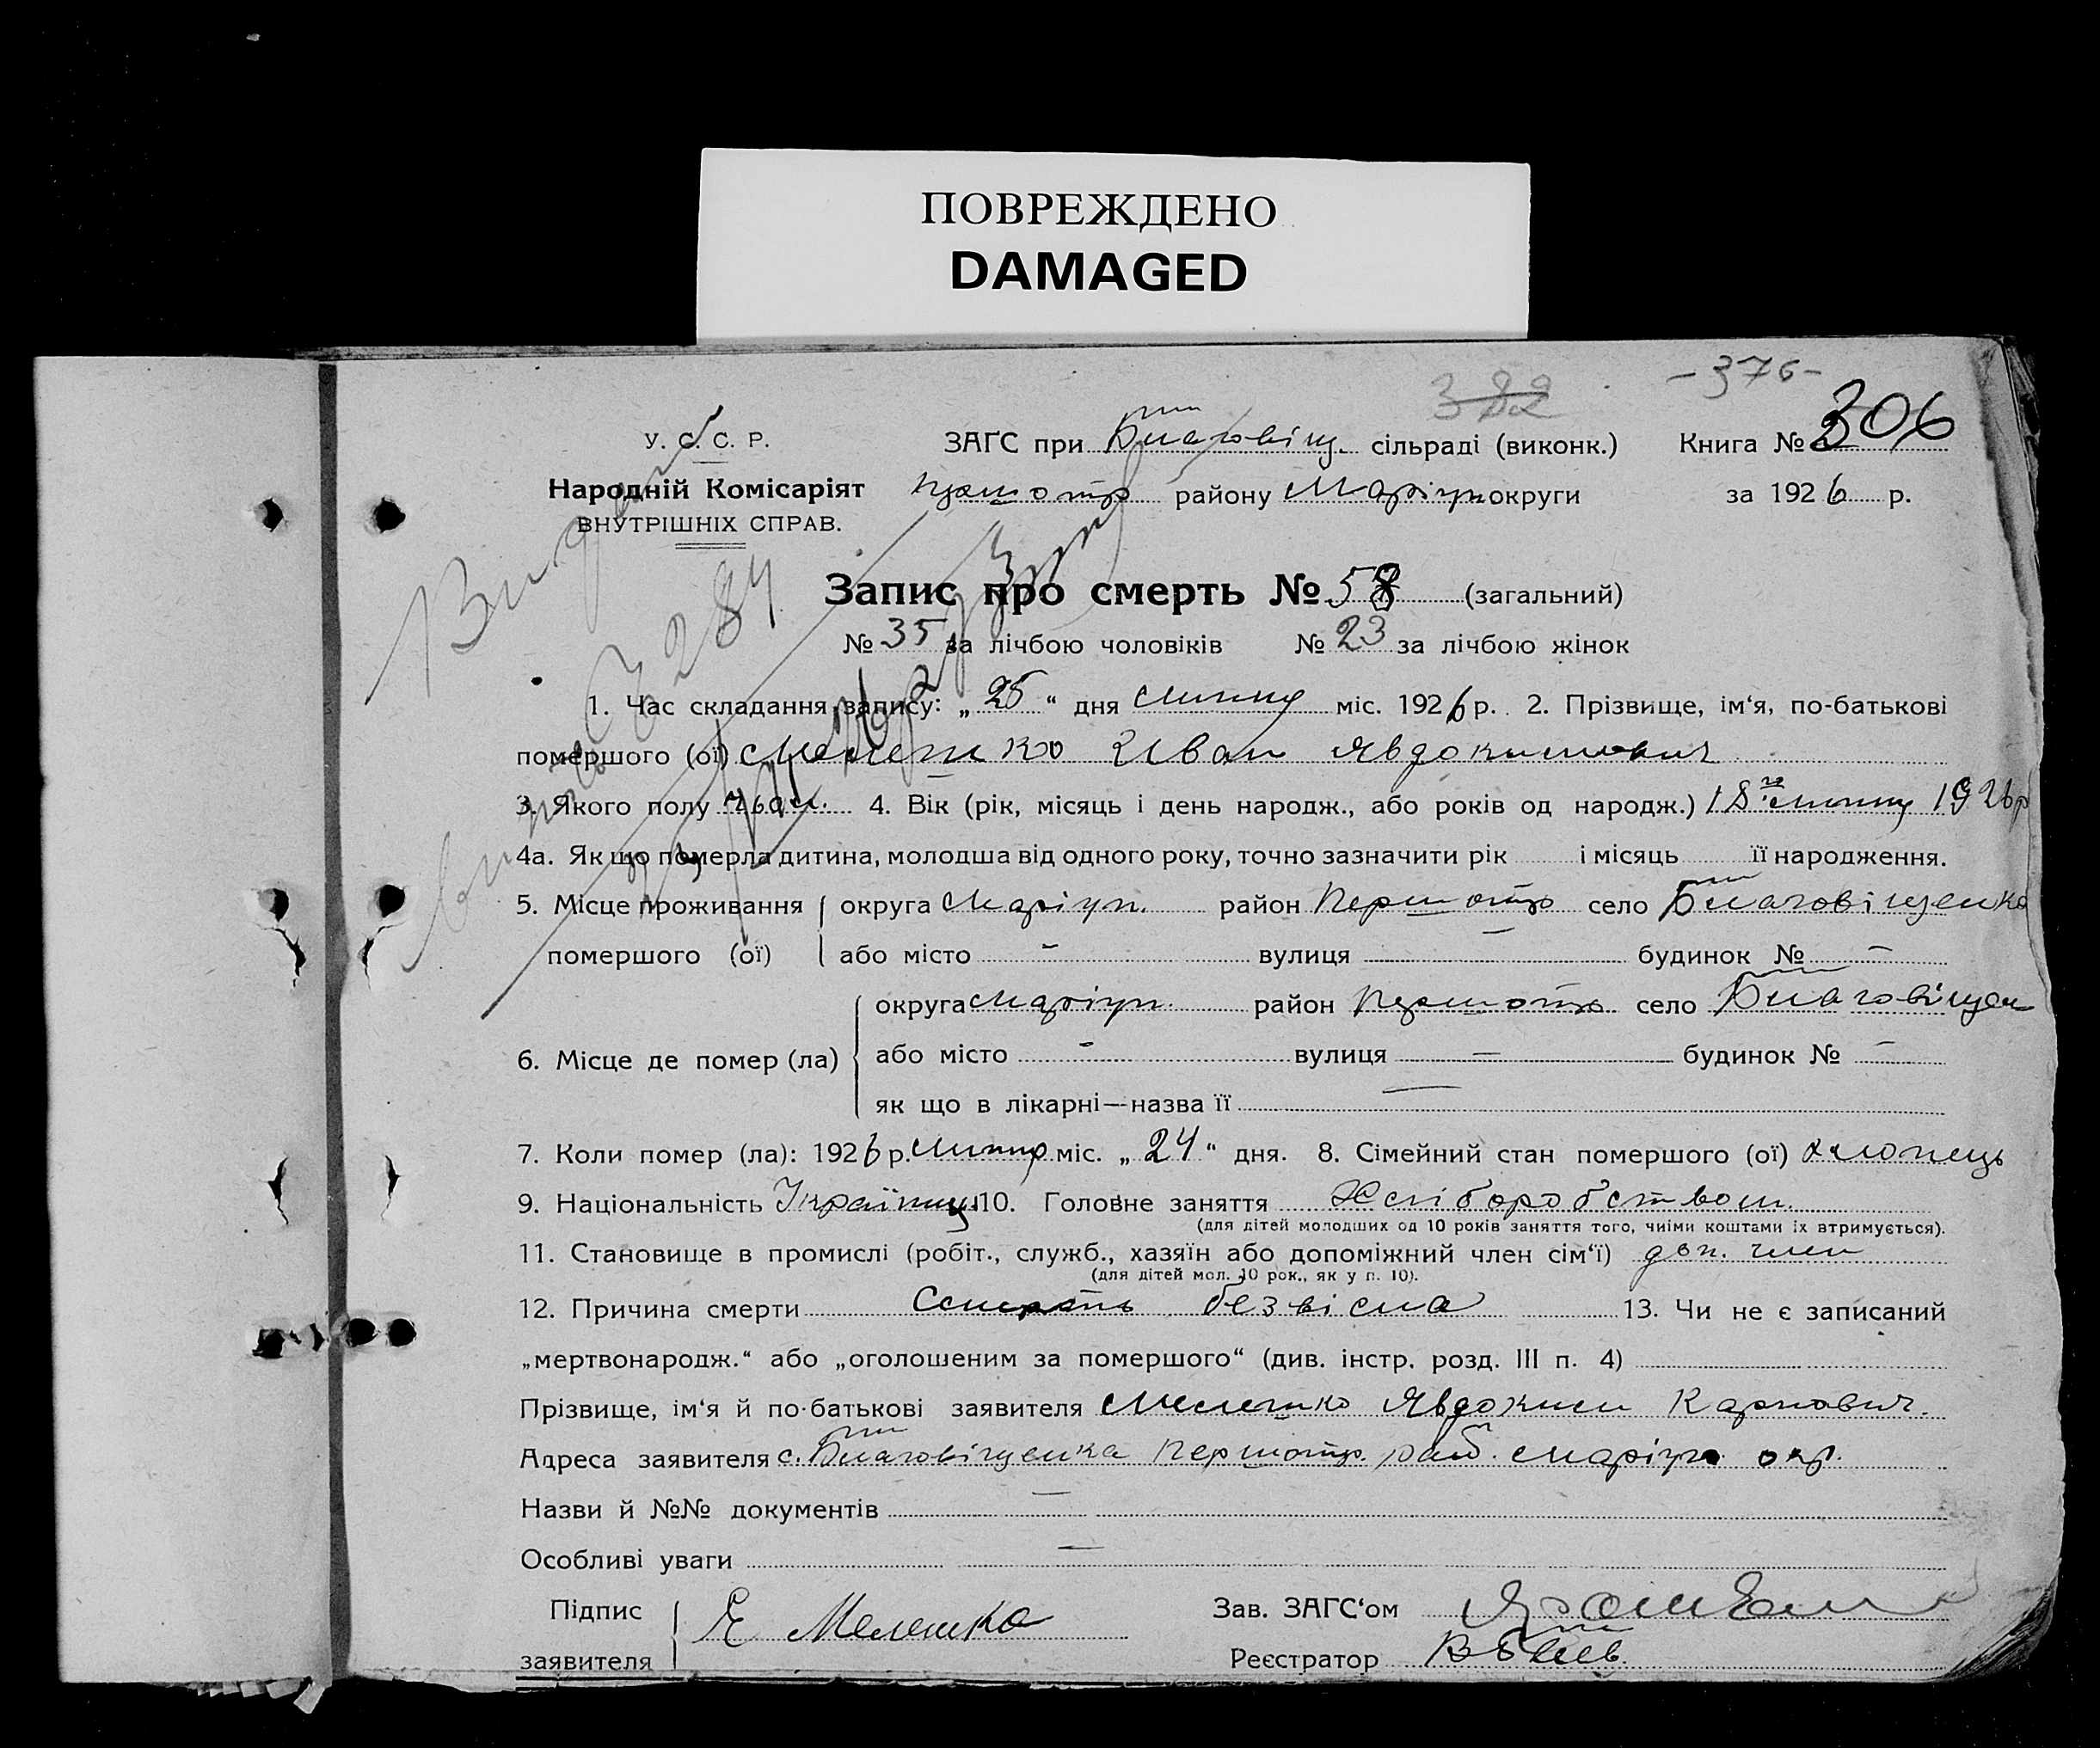 ПОВРЕЖДЕНО
DAMAGED
382
- 376 -
У. С. С. Р.
ЗАГС при Благовіщ. сільраді (виконк.) Книга № 306
Народній Комісаріят
району Маріуп округи за 1926 р.
ВНУТРІШНІХ СПРАВ.
Запис про смерть № 58 (загальний)
№ 35 за лічбою чоловіків № 23 за лічбою жінок
1. Час складання запису: „ 25 “ дня липня міс. 1926 р. 2. Прізвище, ім‘я, по-батькові
помершого (ої) Мелешко Иван Явдокимович
3. Якого полу чол. 4. Вік (рік, місяць і день народж., або років од народж.) 18 го липня 1926 р
4а. Як що померла дитина, молодша від одного року, точно зазначити рік і місяць її народження.
5. Місце проживання округа Маріуп. район Першотр село Благовіщенка
помершого (ої) або місто - вулиця — будинок № —
округа Маріуп. район Першотр село Благовіщен
6. Місце де помер (ла) або місто - вулиця — будинок № —
як що в лікарні—назва її —
7. Коли помер (ла): 1926 р. липня міс. „ 24 “ дня. 8. Сімейний стан помершого (ої) хлопець
9. Національність Українець 10. Головне заняття Хліборобством
(для дітей молодших од 10 років заняття того, чиїми коштами їх втримується).
11. Становище в промислі (робіт., служб., хазяїн або допоміжний член сім‘ї) доп. член
(для дітей мол. 10 рок., як у п. 10).
12. Причина смерти Смерть безвісна 13. Чи не є записаний
„мертвонародж.“ або „оголошеним за помершого“ (див. інстр. розд. III п. 4)
Прізвище, ім‘я й по-батькові заявителя Мелешко Явдоким Карпович.
Адреса заявителя с. Благовіщенка Першотр. рай. Маріуп окр.
Назви й №№ документів —
Особливі уваги —
Підпис Є Мелешко Зав. ЗАГС‘ом
заявителя Реєстратор